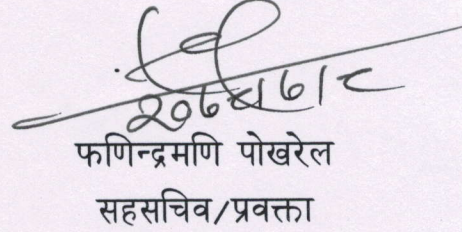 फणिन्द्रमणि पोखरेल
सहसचिव/प्रवक्ता